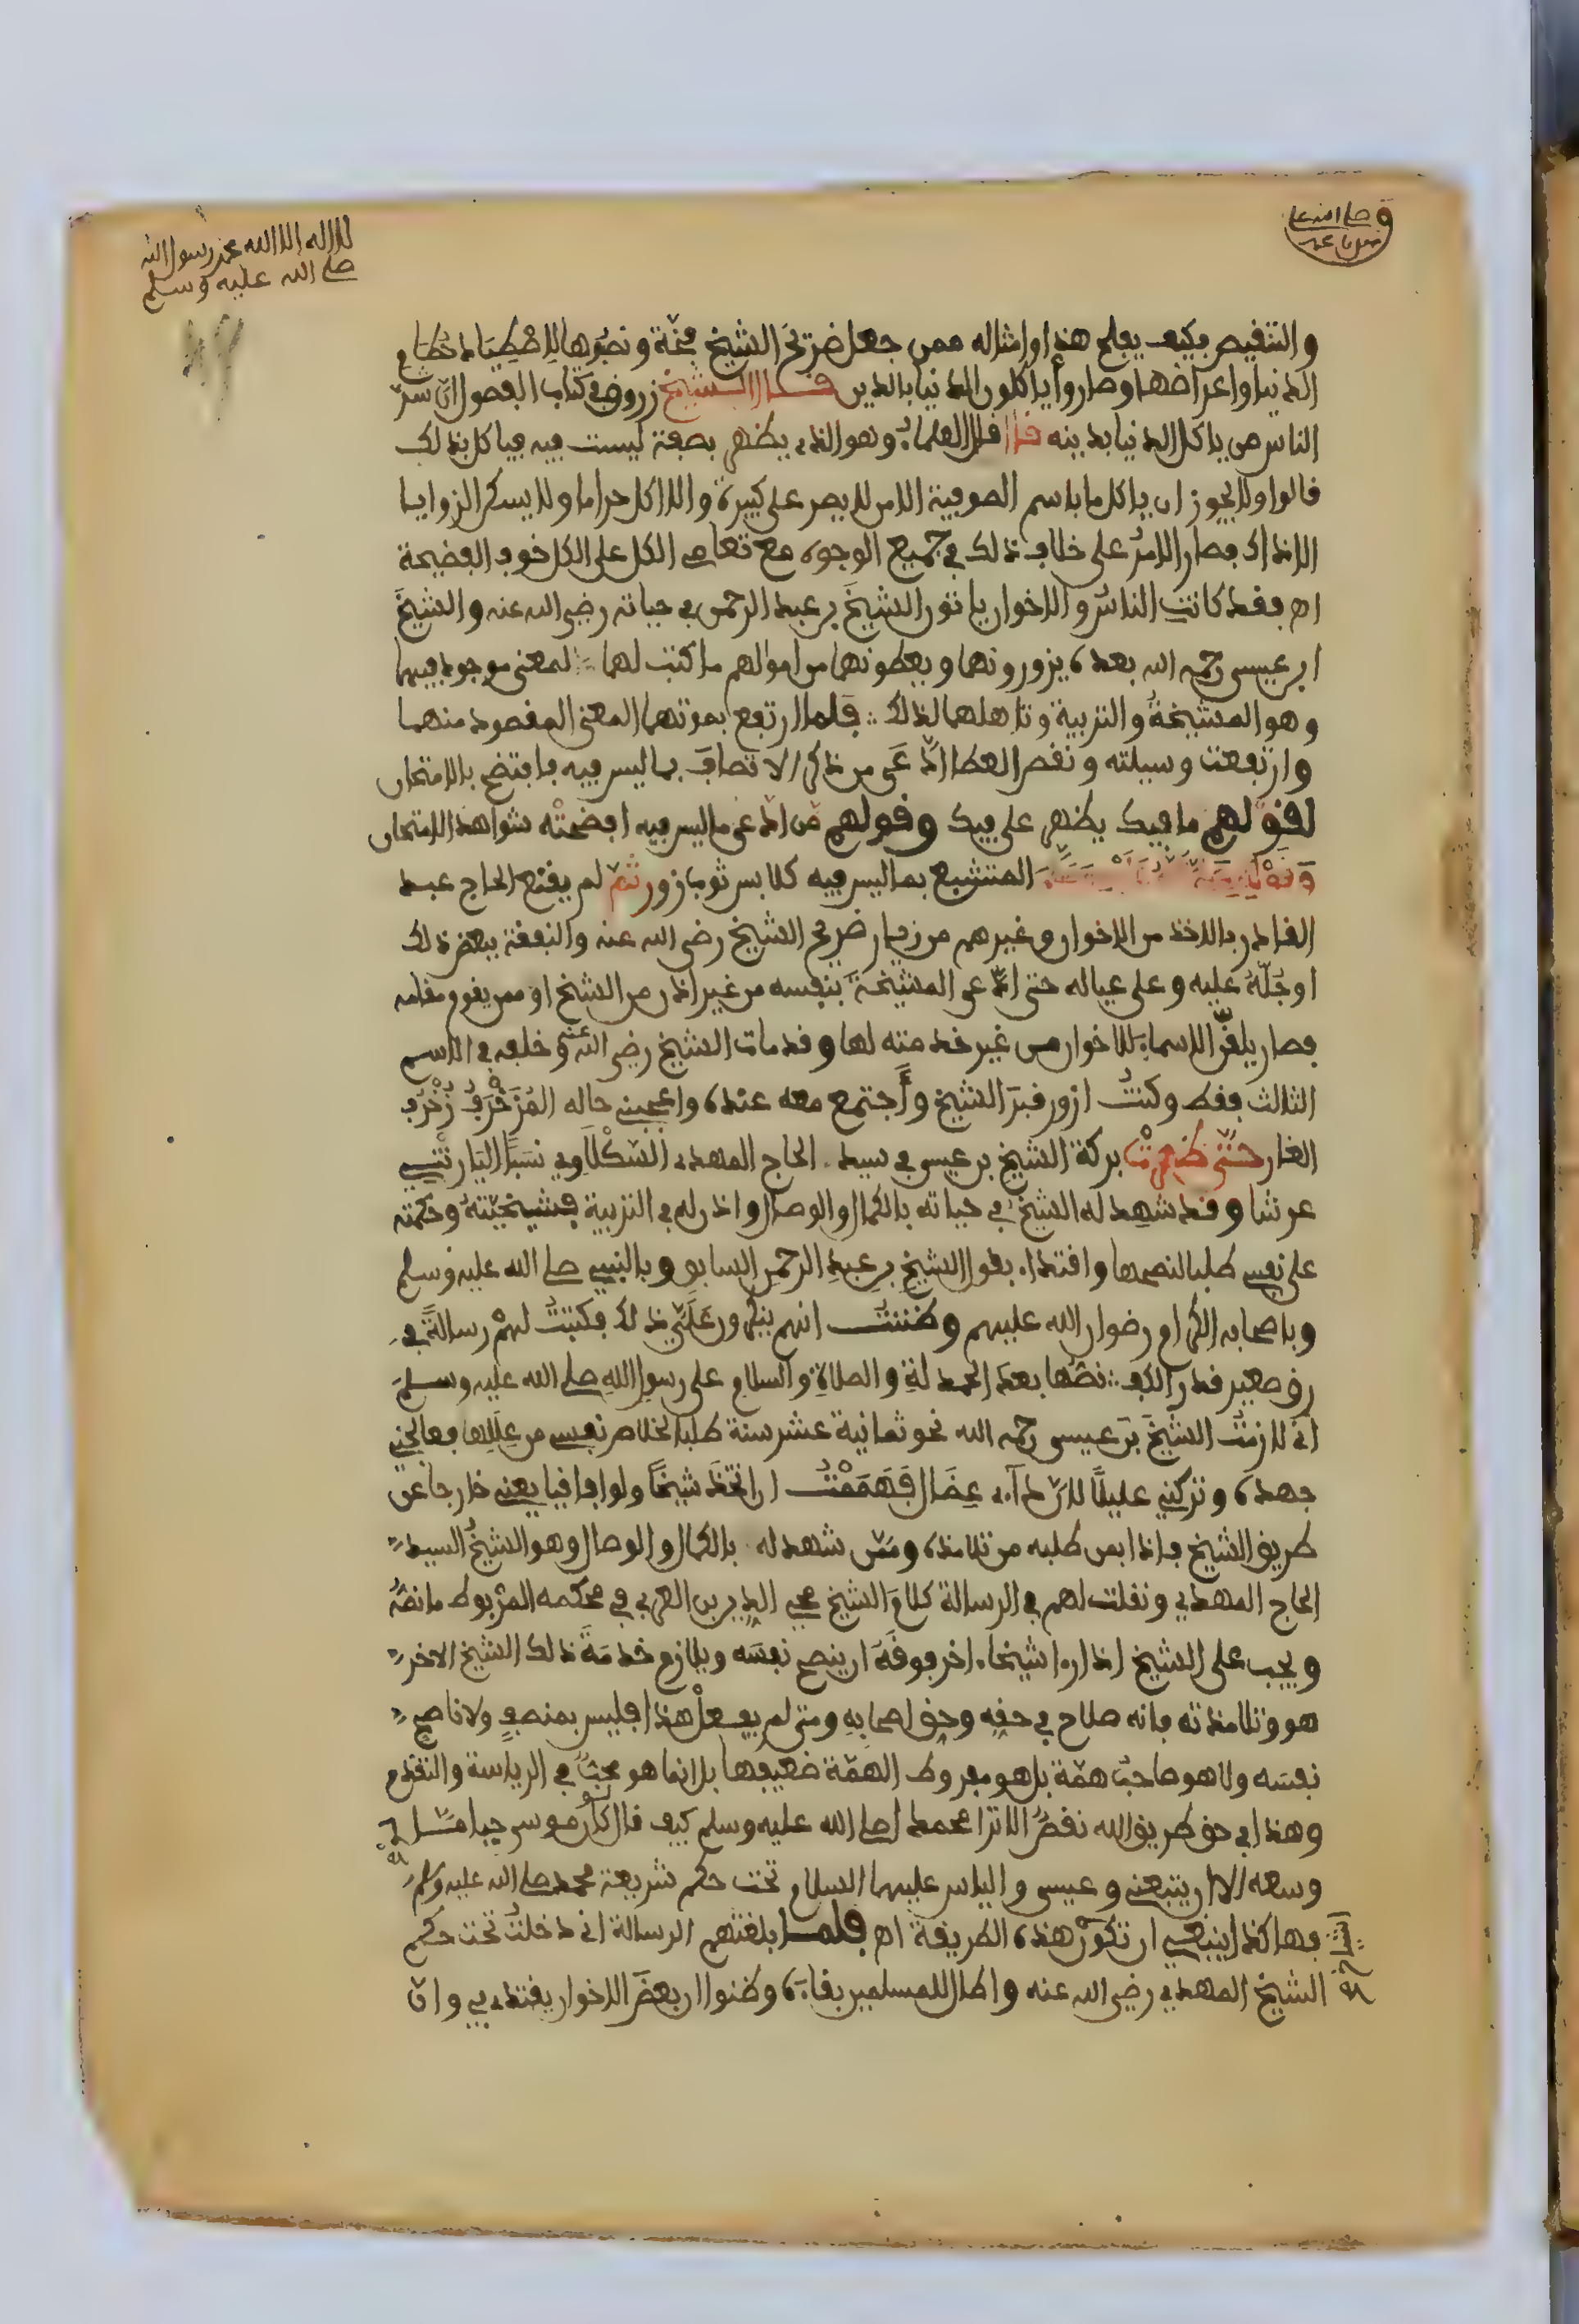 لا اله الا الله محمد رسول الله
صلى الله عليه وسلم
والتنقيص فكيف يفلح هذا وامثاله ممن جعل ضريح الشيخ ونصبوها للاصطياد حطام
الدنيا واعراضها وصاروا ياكلون الدنيا بالدين قال الشيخ زروق في كتاب الفصول ان شر
الناس من ياكل الدنيا بدينه قال قال العلماء وهو الذي يظهر بصفة ليست فيه فياكل بذلك
قالوا ولا يجوز ان ياكل ما باسم الصوفية الا من لا يصر على كبيرة والا اكل حراما ولا يسكن الزوايا
الا ذاك فصار الامر على خلاف ذلك في جميع الوجوه مع تعامي الكل على الكل خوف الفضيحة
اه فقد كانت الناس والاخوان ياتون الشيخ بن عبد الرحمن في حياته رضي الله عنه والشيخ
ابن عيسى رحمه الله بعده يزورونهما ويعطونهما من اموالهم ما كتب لهما لمعنى موجود فيهما
وهو المشيخة والتربية وتاهلهما لذلك فلما ارتفع بموتهما المعنى المقصود منهما
وارتفعت وسيلته ونقص العطا ادعى من ذكر الاتصاف بما ليس فيه فافتضح بالامتحان
لقولهم ما فيك يظهر على فيك وقولهم من ادعى ما ليس فيه افضحته شواهد الامتحان
المتشبع بما ليس فيه كلابس ثوبي زور ثم لم يقنع الحاج عبد
القادر بالاخذ من الاخوان وغيرهم من زيار ضريح الشيخ رضي الله عنه والنفقة ببعض ذلك
او جله عليه وعلى عياله حتى ادعى المشيخة بنفسه من غير اذن من الشيخ او ممن يقوم مقامه
فصار يلقن الاسماء للاخوان من غير خدمته لها وقد مات الشيخ رضي الله عنه وخلفه في الاسم
الثالث فقط وكنت ازور قبر الشيخ واجتمع معه عنده واعجبني حاله المزخرف زخرف
الغار حتى ظهرت بركة الشيخ بن عيسى في سيد الحاج المهدي السكلاوي نسبا اليارتني
عرشا وقد شهد له الشيخ في حياته بالكمال والوصال واذن له في التربية فشيخته وحكمته
على نفسي طلبا لنصحها واقتداء بقول الشيخ بن عبد الرحمن السابق وبالنبي صلى الله عليه وسلم
وباصحابه الكرام رضوان الله عليهم وظننت انهم ينكرون علي ذلك فكتبت لهم رسالة في
رق صغير قدر الكف نصها بعد الحمد لله والصلاة والسلام على رسول الله صلى الله عليه وسلم
اني لازمت الشيخ بن عيسى رحمه الله نحو ثمانية عشر سنة طلبا لخلاص نفسي من عللها فعالجني
جهده وتركني عليلا لان داءي عضال فهممت ان اتخذ شيخا ولو افاقيا يعني خارجا عن
طريق الشيخ فاذا بمن طلبه من تلامذه وممن شهد له بالكمال والوصال وهو الشيخ السيد
الحاج المهدي ونقلت لهم في الرسالة كلام الشيخ محي الدين بن العربي في محكمه المربوط ما نصه
ويجب على الشيخ اذا راى شيخا اخر فوقه ان ينصح نفسه ويلازم خدمة ذلك الشيخ الاخر
هو وتلامذته فانه صلاح في حقه وحق اصحابه ومتى لم يفعل هذا فليس بمنصف ولا ناصح
نفسه ولا هو صاحب همة بل هو مفروط الهمة ضعيفها بل انما هو محب في الرياسة والتقدم
وهذا في حق طريق الله نقص الا ترا محمدا صلى الله عليه وسلم كيف قال لو كان موسى حيا ما
وسعه الا ان يتبعني وعيسى والياس عليهما السلام تحت حكم شريعة محمد صلى الله عليه وسلم
فهاكذا ينبغي ان تكون هذه الطريقة اه فلما بلغتهم الرسالة اني دخلت تحت حكم
الشيخ المهدي رضي الله عنه واطال للمسلمين بقاءه وظنوا ان بعض الاخوان يقتدي بي وان